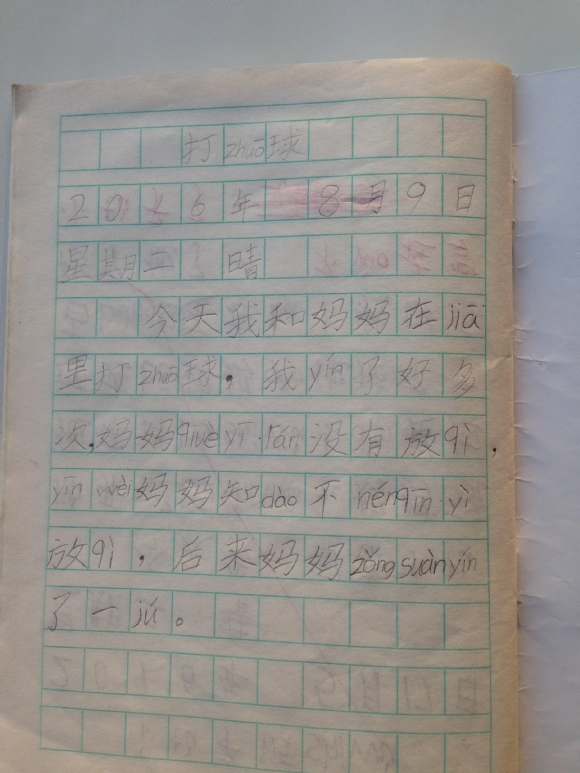 打zhuō球
2016年8月9日
星期二 晴
今天我和妈妈在jiā
里打zhuō球。我yín了好多
次,妈妈què yī rán没有放qì,
yīn wèi妈妈知dào不néng qīn yì
放qì。后来妈妈zǒng suàn yín
了一jú。